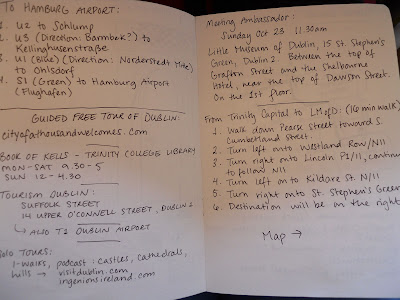 TO HAMBURG AIRPORT:
1. U2 to Schlump
2. U3 (Direction: Barmbek?) to
Kellinghusenstraße
3. U1 (Blue) (Direction: Norderstedt Mitte)
to Ohlsdorf
4. S1 (Green) to Hamburg Airport
(Flughafen)
GUIDED FREE TOUR OF DUBLIN:
cityofathousandwelcomes.com
BOOK OF KELLS - TRINITY COLLEGE LIBRARY
MON-SAT 9.30-5
SUN 12-4.30
TOURISM DUBLIN:
SUFFOLK STREET
14 UPPER O'CONNELL STREET, DUBLIN 1
↳ ALSO T2 DUBLIN AIRPORT
SOLO TOURS:
i-walks, podcast: castles, cathedrals,
hills → visitdublin.com
ingeniousireland.com
Meeting Ambassador:
Sunday Oct 23 11.30am
Little Museum of Dublin, 15 St. Stephen's
Green, Dublin 2. Between the top of
Grafton Street and the Shelbourne
Hotel, near the top of Dawson Street.
On the 1st floor.
From Trinity Capital to LMofD: (16 min walk)
1. Walk down Pearse Street toward S.
Cumberland Street.
2. Turn left onto Westland Row/N11
3. Turn right onto Lincoln Pl/11, continue
to follow N11
4. Turn left on to Kildare St N/11
5. Turn right onto St. Stephen's Green
6. Destination will be on the right
Map →